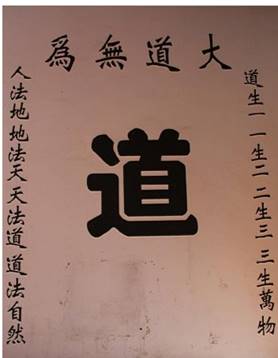 大道無爲
道生一一生二二生三三生萬物
道
人法地地法天天法道道法自然